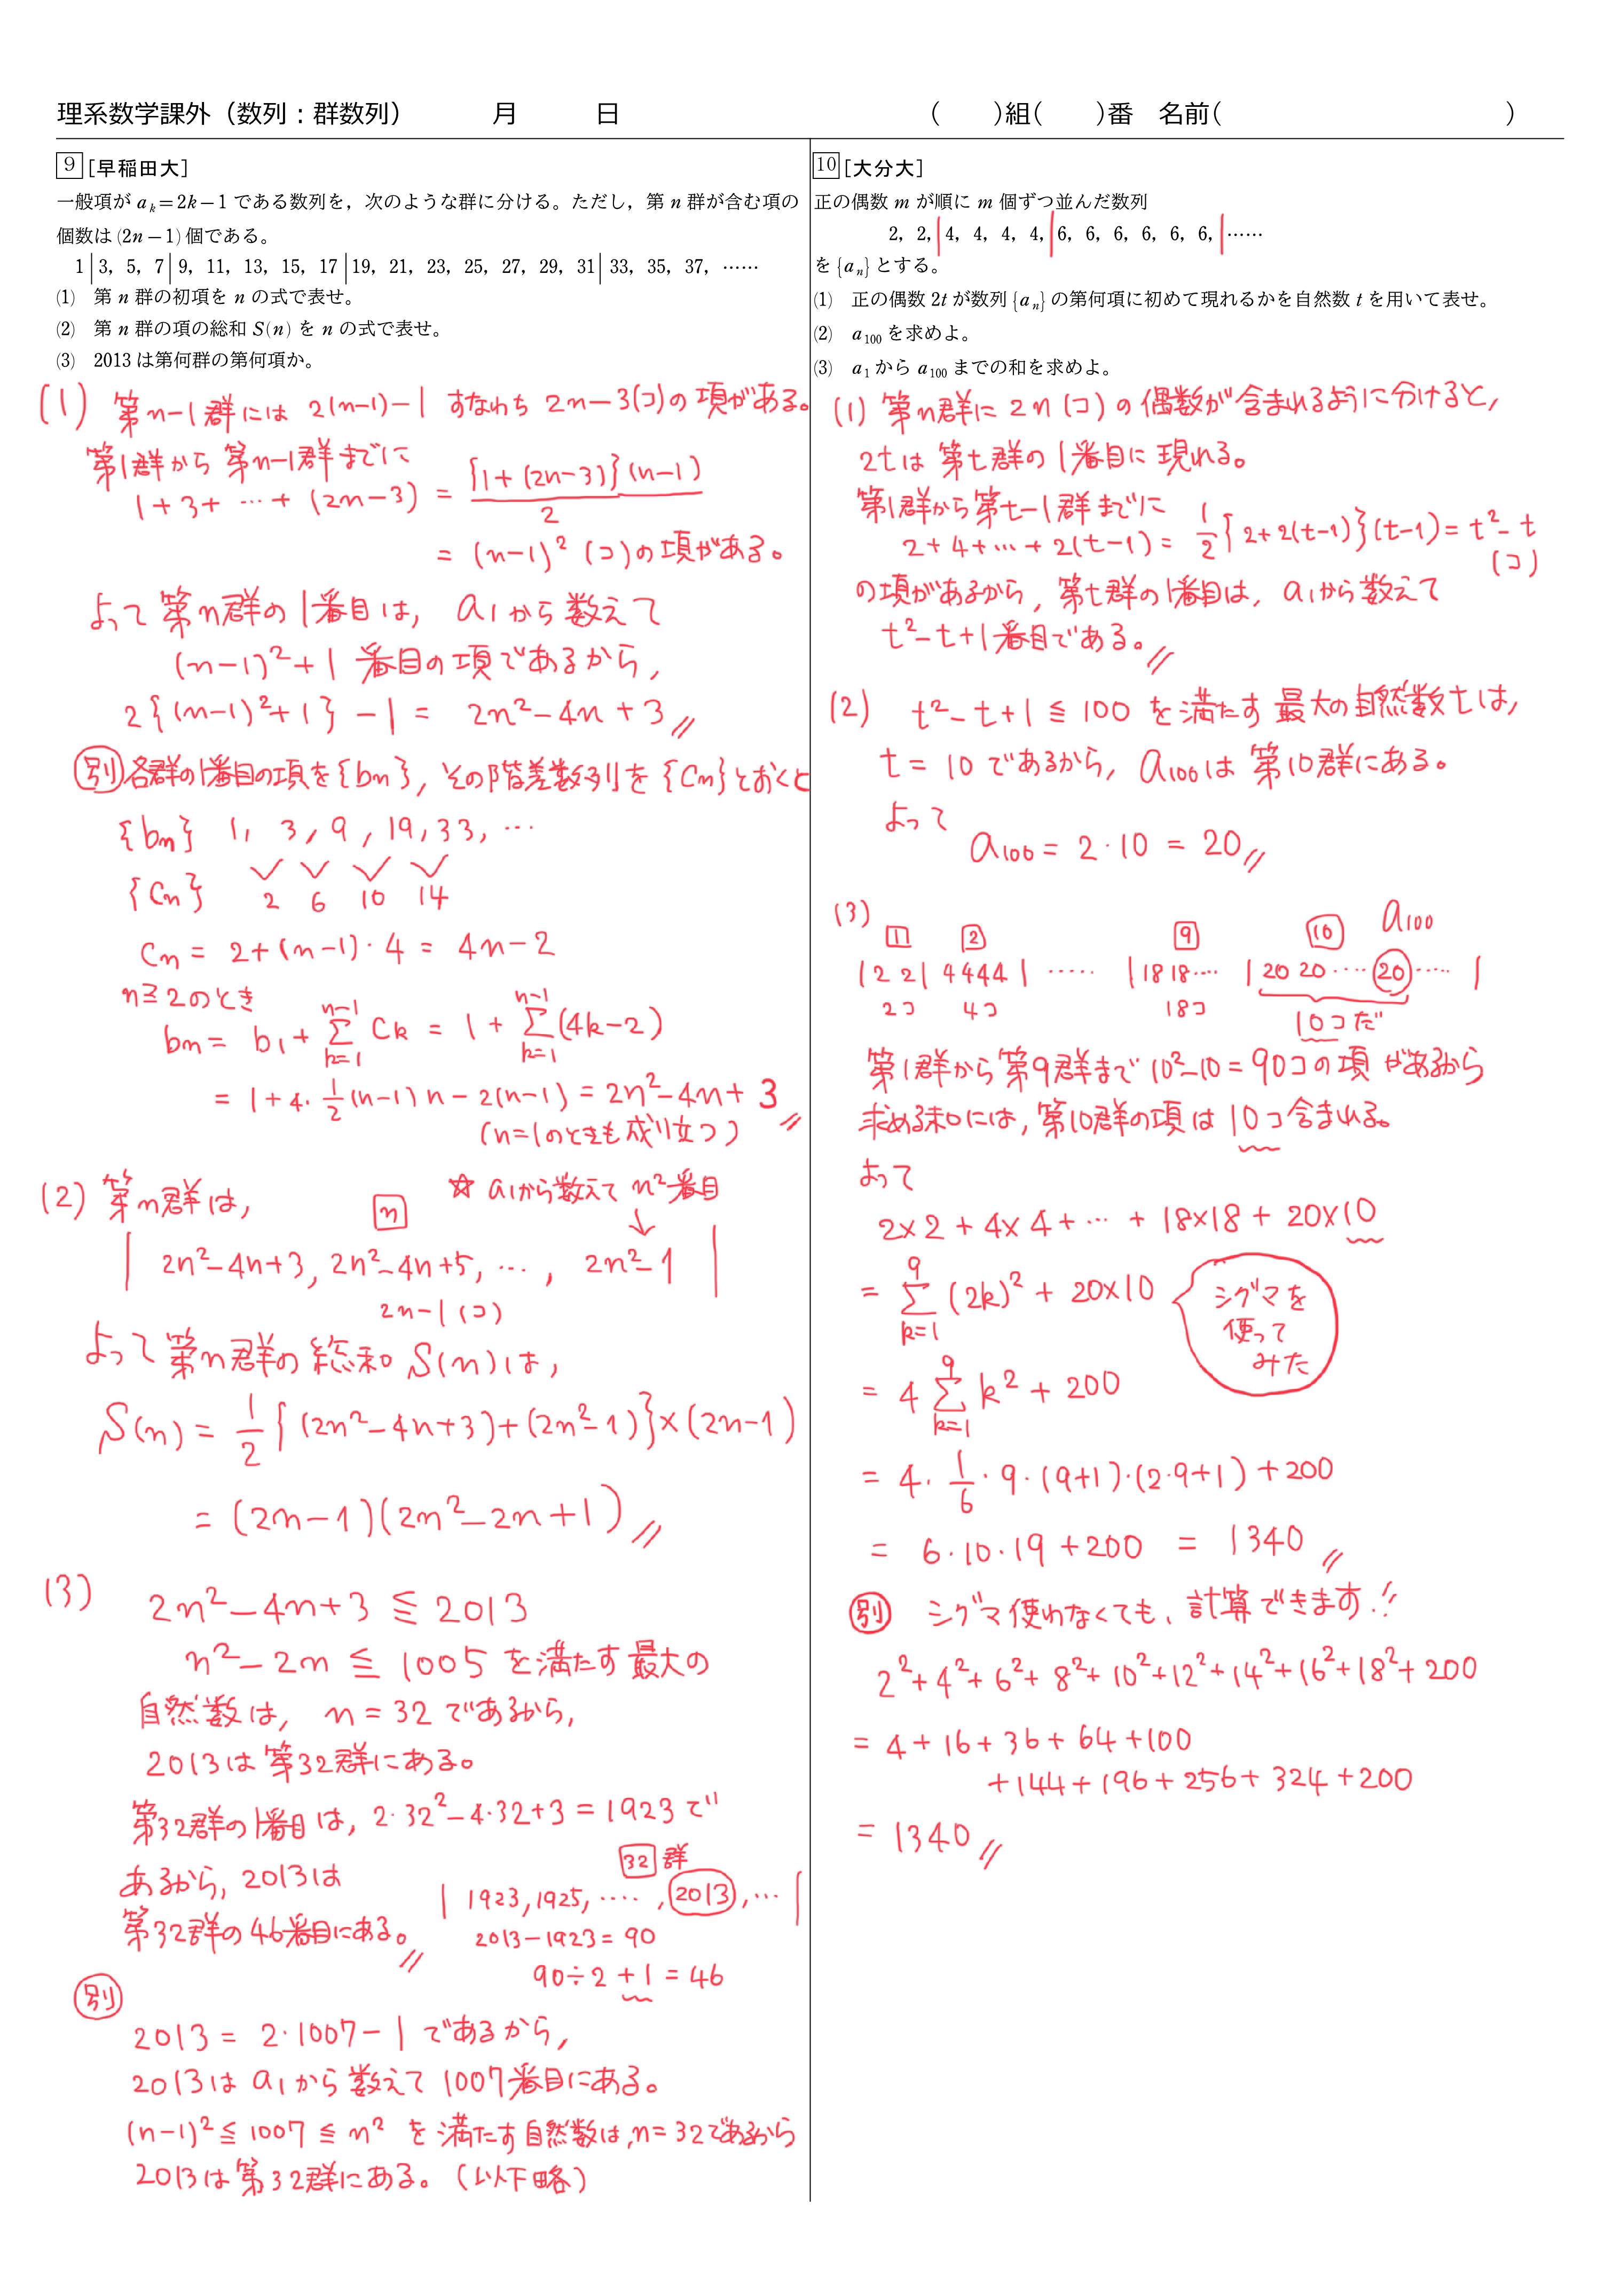 理系数学課外（数列：群数列）　月　日　(　)組(　)番　名前(　)
9 [早稲田大]
一般項が a_k=2k−1 である数列を，次のような群に分ける。ただし，第 n 群が含む項の
個数は (2n−1) 個である。
1 | 3, 5, 7 | 9, 11, 13, 15, 17 | 19, 21, 23, 25, 27, 29, 31 | 33, 35, 37, ……
(1)　第 n 群の初項を n の式で表せ。
(2)　第 n 群の項の総和 S(n) を n の式で表せ。
(3)　2013 は第何群の第何項か。
(1) 第n−1群には 2(n−1)−1 すなわち 2n−3(コ)の項がある。
第1群から第n−1群までに
1+3+ … + (2n−3) = {1+(2n−3)}(n−1)/2
= (n−1)² (コ)の項がある。
よって第n群の1番目は, a₁から数えて
(n−1)²+1 番目の項であるから,
2{(n−1)²+1} −1 = 2n²−4n+3
別 各群の1番目の項を{bn}, その階差数列を{Cn}とおくと
{bn} 1, 3, 9, 19, 33, …
{Cn} 2 6 10 14
Cn = 2+(n−1)・4 = 4n−2
n≧2のとき
bn = b₁+ Σ[k=1, n−1] Ck = 1+ Σ[k=1, n−1] (4k−2)
= 1+4・1/2(n−1)n−2(n−1) = 2n²−4n+3
(n=1のときも成り立つ)
(2) 第n群は,
☆ a₁から数えて n²番目
n ↓
| 2n²−4n+3, 2n²−4n+5, …, 2n²−1 |
2n−1(コ)
よって第n群の総和 S(n)は,
S(n) = 1/2{(2n²−4n+3)+(2n²−1)}×(2n−1)
= (2n−1)(2n²−2n+1)
(3) 2n²−4n+3 ≦ 2013
n²−2n ≦ 1005 を満たす最大の
自然数は, n=32 であるから,
2013は第32群にある。
第32群の1番目は, 2・32²−4・32+3=1923で
あるから, 2013は
第32群の46番目にある。
32 群
| 1923, 1925, ‥‥, 2013, … |
2013−1923=90
90÷2+1=46
別
2013 = 2・1007−1 であるから,
2013は a₁から数えて1007番目にある。
(n−1)²≦1007≦n² を満たす自然数は, n=32であるから
2013は第32群にある。(以下略)
10 [大分大]
正の偶数 m が順に m 個ずつ並んだ数列
2, 2, | 4, 4, 4, 4, | 6, 6, 6, 6, 6, 6, | ……
を {a_n} とする。
(1)　正の偶数 2t が数列 {a_n} の第何項に初めて現れるかを自然数 t を用いて表せ。
(2)　a₁₀₀ を求めよ。
(3)　a₁ から a₁₀₀ までの和を求めよ。
(1) 第n群に2n(コ)の偶数が含まれるように分けると,
2tは第t群の1番目に現れる。
第1群から第t−1群までに
2+4+…+2(t−1) = 1/2{2+2(t−1)}(t−1) = t²−t
(コ)
の項があるから, 第t群の1番目は, a₁から数えて
t²−t+1番目である。
(2) t²−t+1≦100 を満たす最大の自然数tは,
t=10であるから, a₁₀₀は第10群にある。
よって
a₁₀₀ = 2・10 = 20
(3)
1 2 9 10 a₁₀₀
| 2 2 | 4 4 4 4 | ‥‥‥ | 18 18‥‥ | 20 20‥‥20‥‥ |
2コ 4コ 18コ 10コだ
第1群から第9群まで10²−10=90コの項があるから
求める和には, 第10群の項は10コ含まれる。
よって
2×2+4×4+ … +18×18+20×10
= Σ[k=1, 9] (2k)²+20×10
シグマを
使って
みた
= 4 Σ[k=1, 9] k²+200
= 4・1/6・9・(9+1)・(2・9+1)+200
= 6・10・19+200 = 1340
別 シグマ使わなくても、計算できます!!
2²+4²+6²+8²+10²+12²+14²+16²+18²+200
= 4+16+36+64+100
+144+196+256+324+200
= 1340